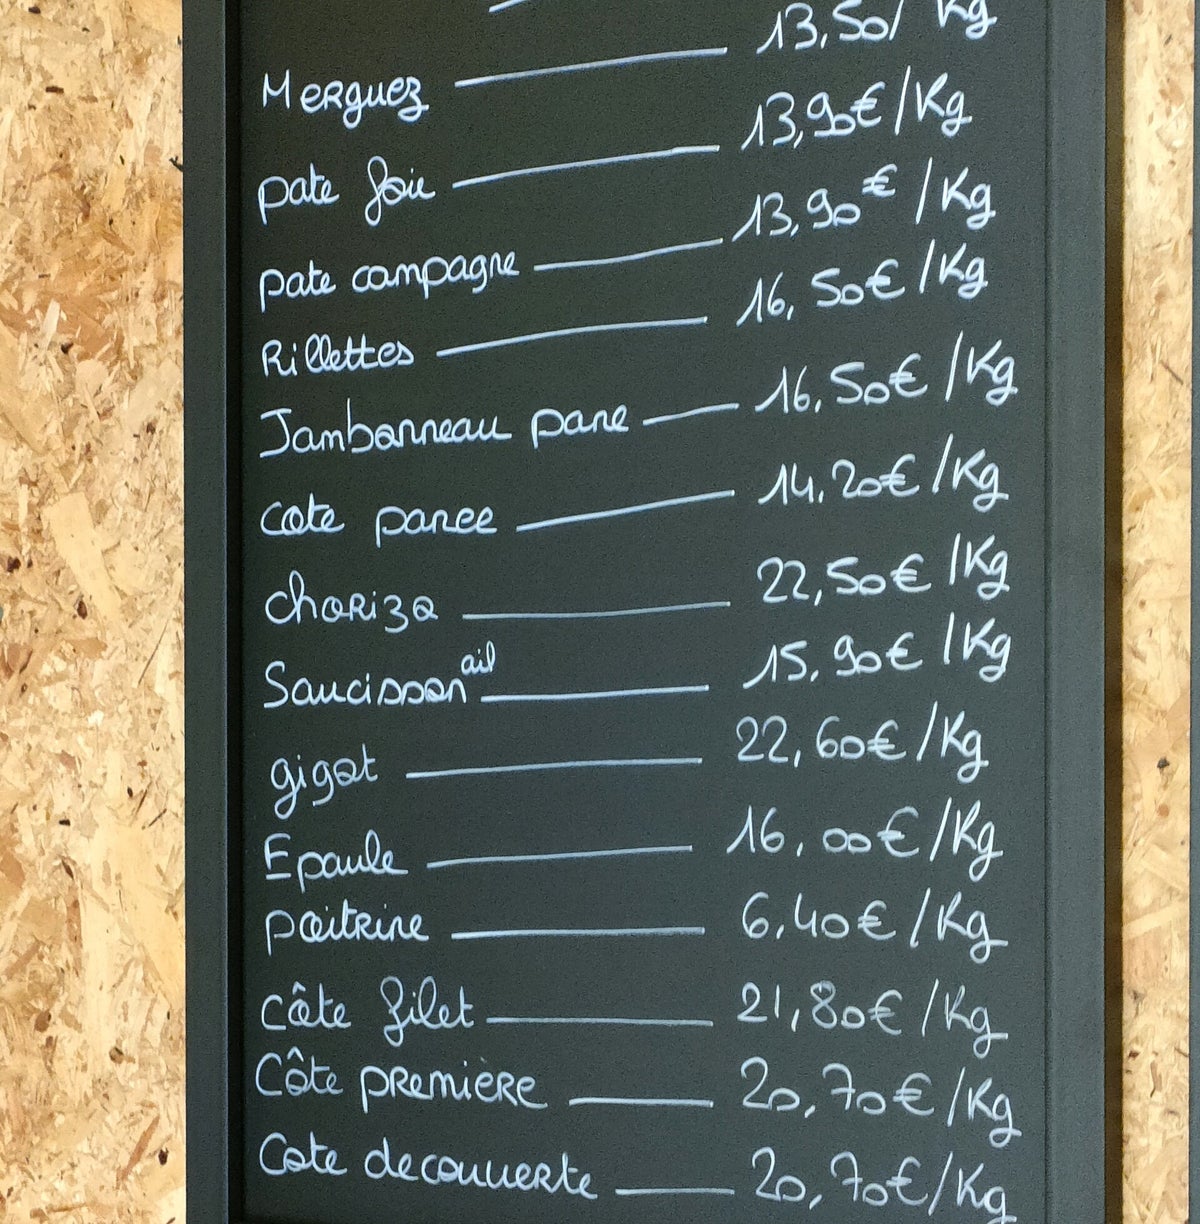 Merguez 13,50/Kg
pate foie 13,90€/Kg
pate campagne 13,90€/Kg
Rillettes 16,50€/Kg
Jambonneau pane 16,50€/Kg
cote panee 14,20€/Kg
chorizo 22,50€/Kg
Saucisson ail 15,90€/Kg
gigot 22,60€/Kg
Epaule 16,00€/Kg
poitrine 6,40€/Kg
côte filet 21,80€/Kg
Côte première 20,70€/Kg
Cote decouverte 20,70€/Kg